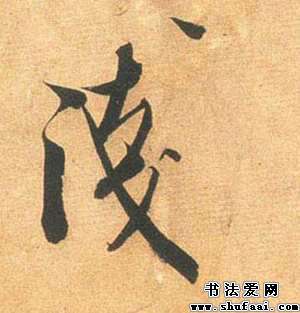 浅
书法爱网
www.shufaai.com